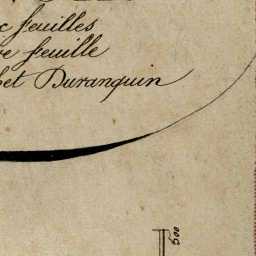 feuilles
feuille
et Duranquin
500